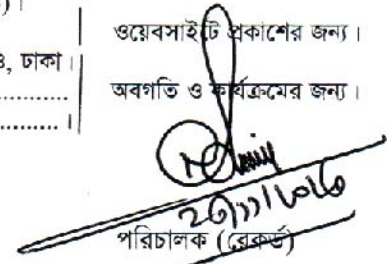 )।
ওয়েবসাইটে প্রকাশের জন্য।
৪, ঢাকা।
অবগতি ও কার্যক্রমের জন্য।
....................
...............।
পরিচালক (রেকর্ড)